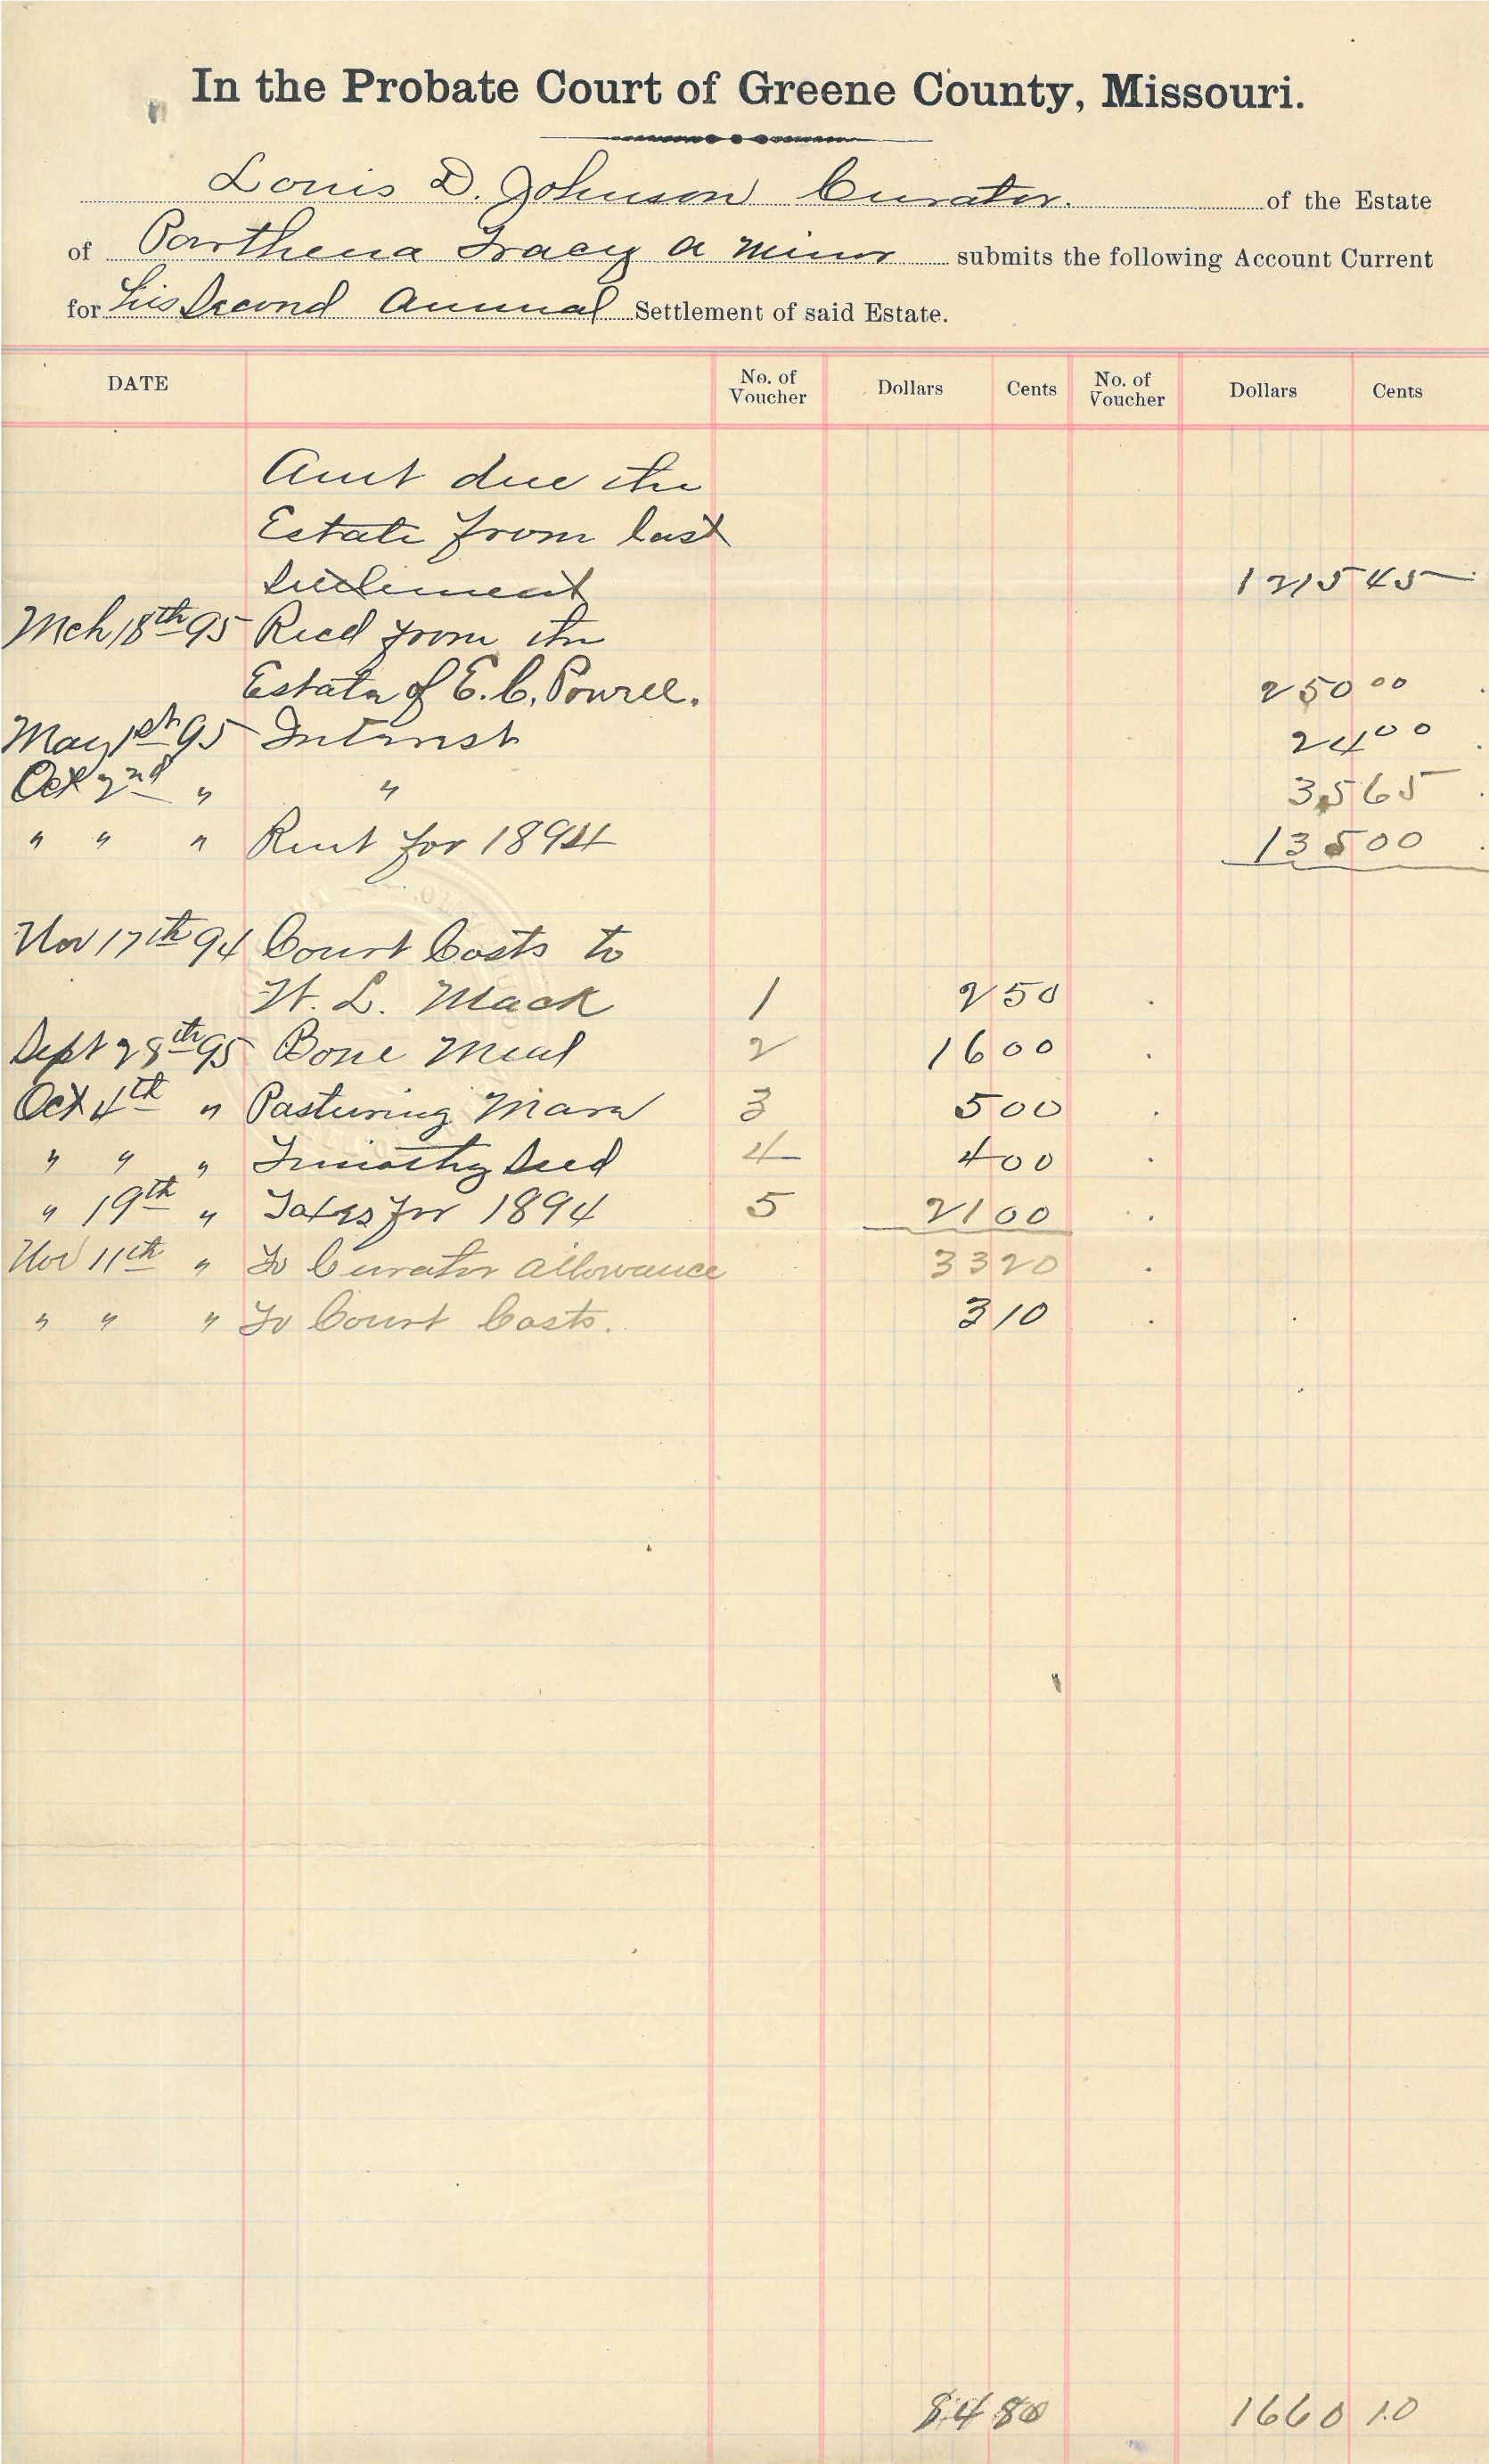 In the Probate Court of Greene County, Missouri.
Louis D. Johnson Curator. of the Estate
of Parthena Tracy a minor submits the following Account Current
for his Second Annual Settlement of said Estate.
DATE No. of Voucher Dollars Cents No. of Voucher Dollars Cents
Amt due the
Estate from last
Settlement 1215 45
Mch 18th 95 Recd from the
Estate of E. C. Powell. 250 00
May 1st 95 Interest 24 00
Oct 2nd " " 35 65
" " " Rent for 1894 135 00
Nov 17th 94 Court Costs to
W. L. Mack 1 2 50
Sept 28th 95 Bone Meal 2 16 00
Oct 4th " Pasturing Mare 3 5 00
" " " Timothy Seed 4 4 00
" 19th " Taxes for 1894 5 21 00
Nov 11th " To Curator Allowance 33 20
" " " To Court Costs. 3 10
84 80 1660 10